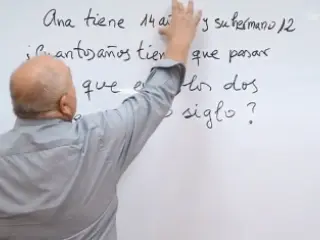 Ana tiene 14 añ y su hermano 12
¿Cuantos años tien que pasar
que e los dos
siglo?